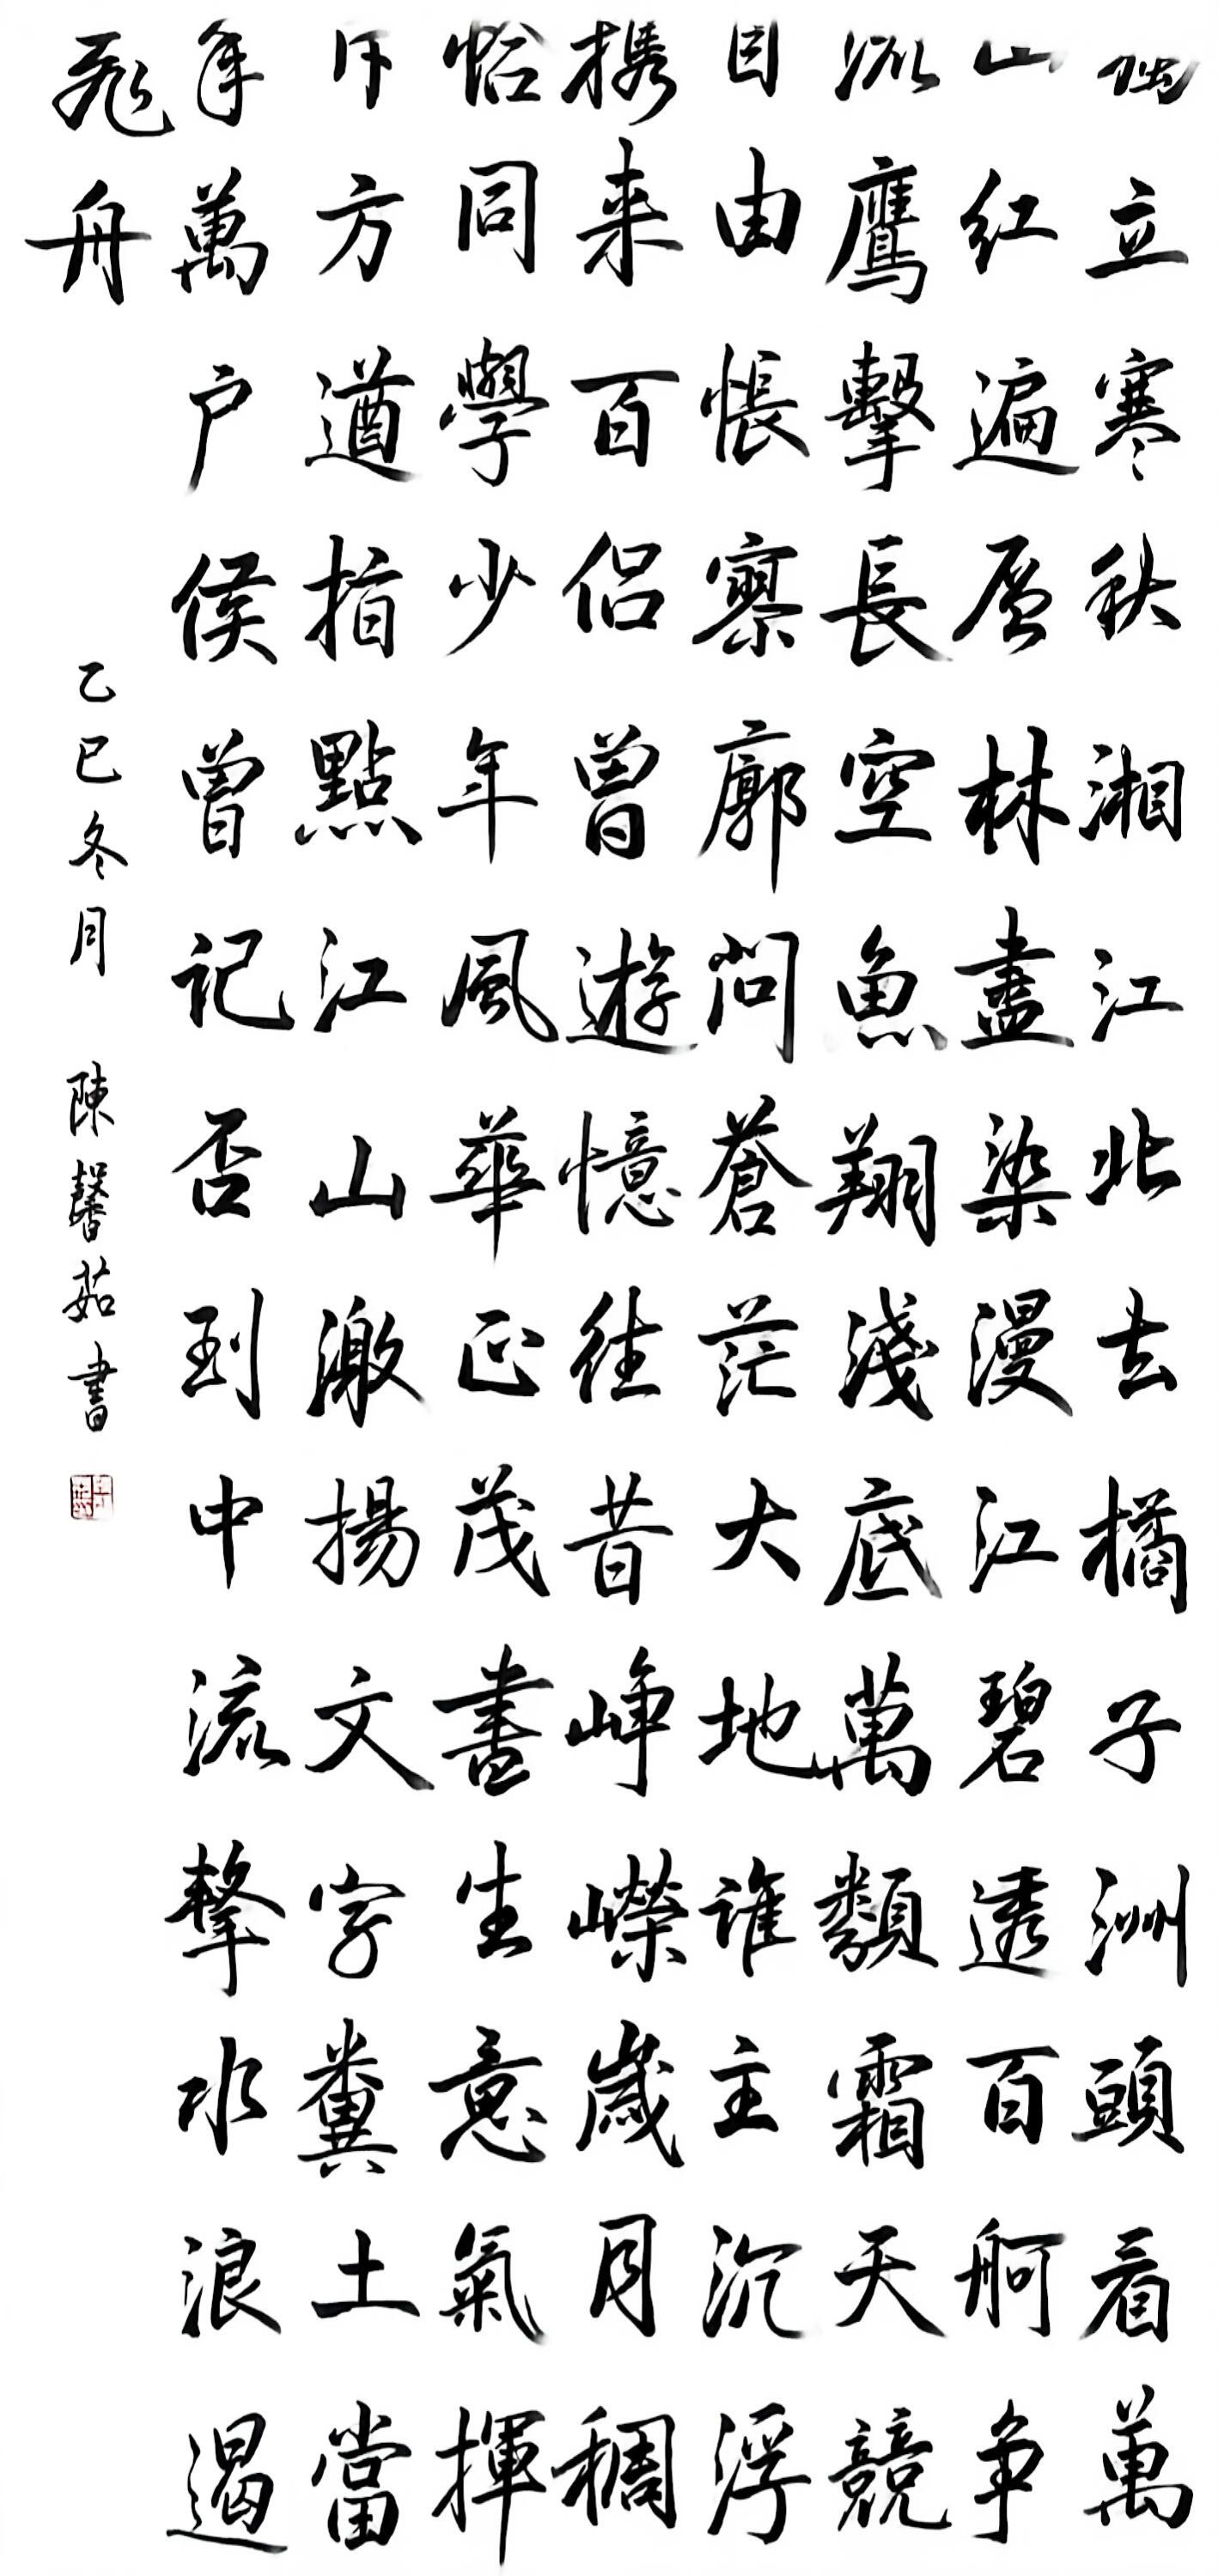 獨立寒秋湘江北去橘子洲頭看萬
山紅遍層林盡染漫江碧透百舸争
流鷹擊長空魚翔淺底萬類霜天競
自由悵寥廓問蒼茫大地誰主沉浮
攜来百侣曾遊憶往昔崢嶸歲月稠
恰同學少年風華正茂書生意氣揮
斥方遒指點江山激揚文字糞土當
年萬户侯曾記否到中流擊水浪遏
飛舟
乙巳冬月 陳馨茹書